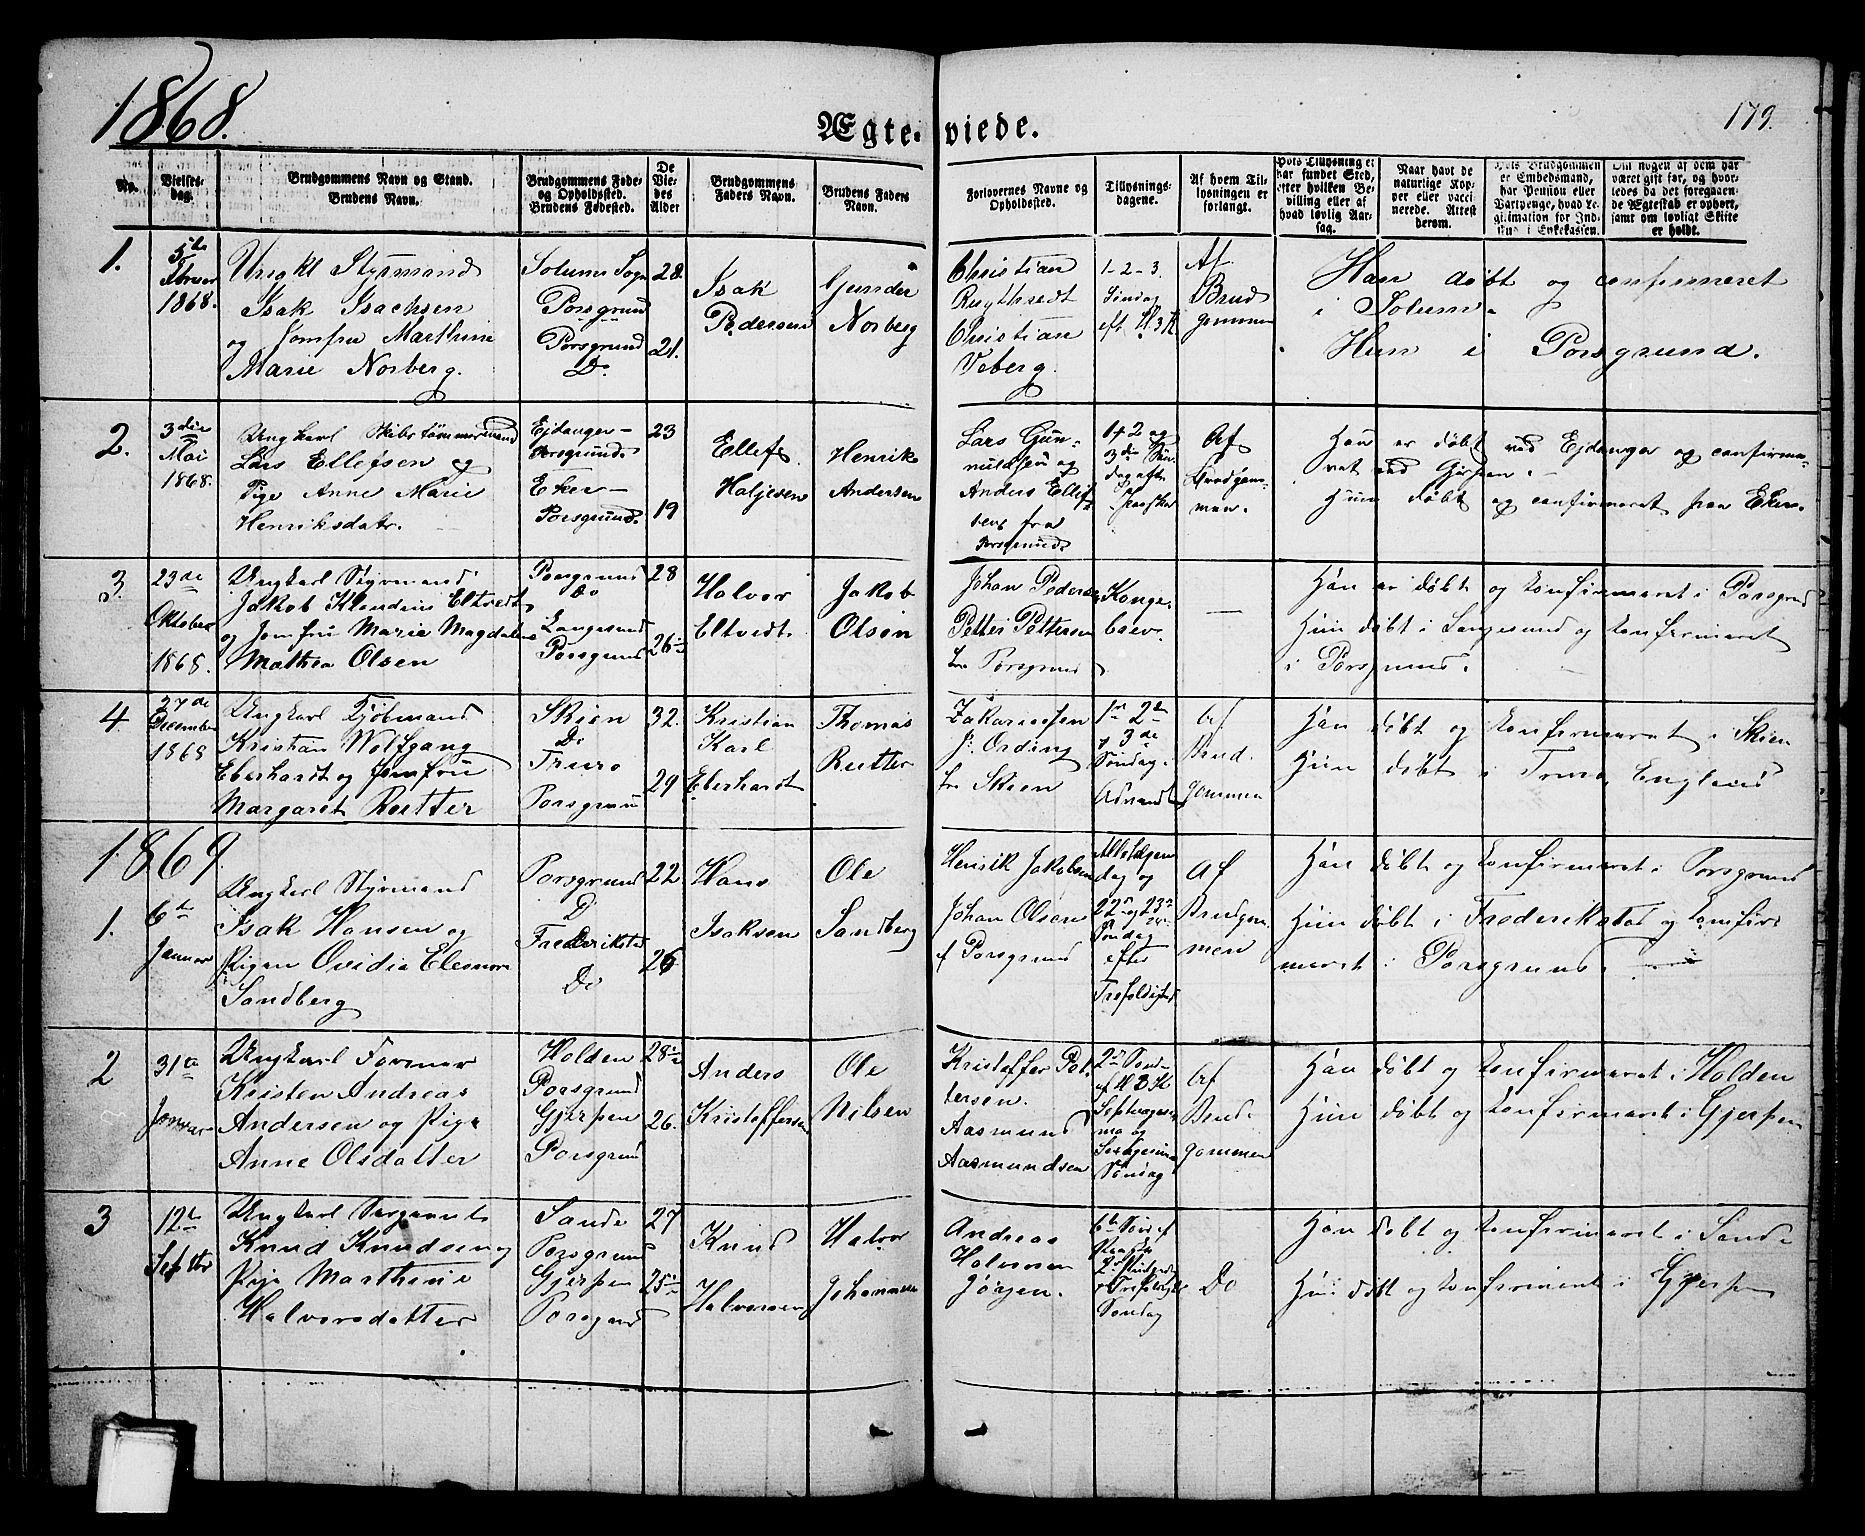 1868.
Ægte- viede.
179.
No.
Vielses-
dag.
Brudgommens Navn og Stand.
Brudens Navn.
Brudgommens Føde-
og Opholdssted.
Brudens Fødested.
De
Vie-
des
Alder
Brudgommens
Faders Navn.
Brudens Faders
Navn.
Forlovernes Navne og
Opholdssted.
Tillysnings-
dagene.
Af hvem Til-
lysningen er
forlangt.
Hvis Tillysning ei
har fundet Sted,
efter hvilken Be-
villing eller af
hvad lovlig Aar-
sag.
Naar havt de
naturlige Kop-
per eller vacci-
nerede. Attest
derom.
Hvis Brudgommen
er Embedsmand,
har Pension eller
Vartpenge, hvad Le-
gitimation for Ind-
skud i Enkekassen.
Om nogen af dem har
været gift før, og hvor-
ledes da det foregaaen-
de Ægteskab er ophørt,
samt om lovligt Skifte
er holdt.
1.
5te
1868.
Ungkl Styrmand
Isak Isachsen
og Jomfru Marthine
Marie Norberg.
Solums Sogn
Porsgrund
Porsgrund
Do
28.
21.
Isak
Pedersen
Gunder
Norberg
Christian
Christian
Veberg.
1-2-3.
Søndag
eft H.3.K
Af
Brud
gommen
Han døbt og confirmeret
i Solum.
Hun i Porsgrund.
2.
3die
Mai
1868.
Ungkarl Skibstømmermand
Lars Ellefsen og
Pige Anne Marie
Henriksdatr.
Ejdanger-
Porsgrund.
Eker-
Porsgrund.
23
19
Ellef
Haljesen
Henrik
Andersen
Lars Gun-
nuldsen og
Anders Ellef
sens fra
Porsgrund.
1 2 og
3die Søn-
dag efter
Paaske
Af
Brudgom-
men.
Han er døbt ved Ejdanger og confirme-
ret ved Gjerpen.-
Hun døbt og confirmeret paa Eker.
3.
23de
Oktober
1868.
Ungkarl Styrmand
Jakob Klaudius Eltvedt
og Jomfru Marie Magdalene
Mathea Olsen
Porsgrund
Do
Langesund
Porsgrund
28
26½
Halvor
Eltvedt
Jakob
Olsen
Johan Pedersen
Petter Pettersen
fra Porsgrund
Konge-
brev.
—
Han er døbt og konfirmeret i Porsgrund
Hun døbt i Langesund og konfirmeret
i Porsgrund.
4.
27de
December
1868
Ungkarl Kjøbmand
Kristian Wolfgang
Eberhardt og Jomfru
Margaret Rutter
Skien
Do
Truro
Porsgrund
32.
29
Kristian
Karl
Eberhardt
Thomas
Rutter
Zakariassen
J. Ording
fra Skien
1ste 2den
og 3de
Søndag
Advendt
Af
Brud-
gommen
Han døbt og konfirmeret i Skien
Hun døbt i Truro England
1869.
1.
6te
Januar
Ungkarl Styrmand
Isak Hansen og
Pigen Ovidia Eleonore
Sandberg
Porsgrund
D
Frederikstad
Do
22.
26
Hans
Isaksen
Ole
Sandberg
Henrik Jakobsen
Johan Olsen
af Porsgrund
Allehelgens
dag og
22de og 23de
Søndag
efter
Trefoldighed
Af
Brudgom
men
Han døbt og konfirmeret i Porsgrund
Hun døbt i Frederikstad og konfir
meret i Porsgrund.
2
31te
Januar
Ungkarl Former
Kristen Andreas
Andersen og Pige
Anne Olsdatter
Holden
Porsgrund
Gjerpen
Porsgrund
28½
26.
Anders
Kristoffersen
Ole
Nilsen
Kristoffer Pet-
tersen.
Aasmund
Aasmundsen
2den Sønd-
af H 3 K
Septuagesi-
ma og
Sexagesima
Søndag
Af
Brud-
gommen
Han døbt og konfirmeret i Holden
Hun døbt og konfirmeret i Gjerpen
3
12te
Septbr
Ungkarl Sergeant
Knud Knudsen og
Pige Marthine
Halvorsdatter
Sande
Porsgrund
Gjerpen
Porsgrund
27
25½
Knud
Halvorsen
Halvor
Johannesen
Andreas
Jørgen.
Trefoldigh
Søndag
Do
Han døbt og konfirmeret i Sande
Hun døbt og konfirmeret i Gjerpen